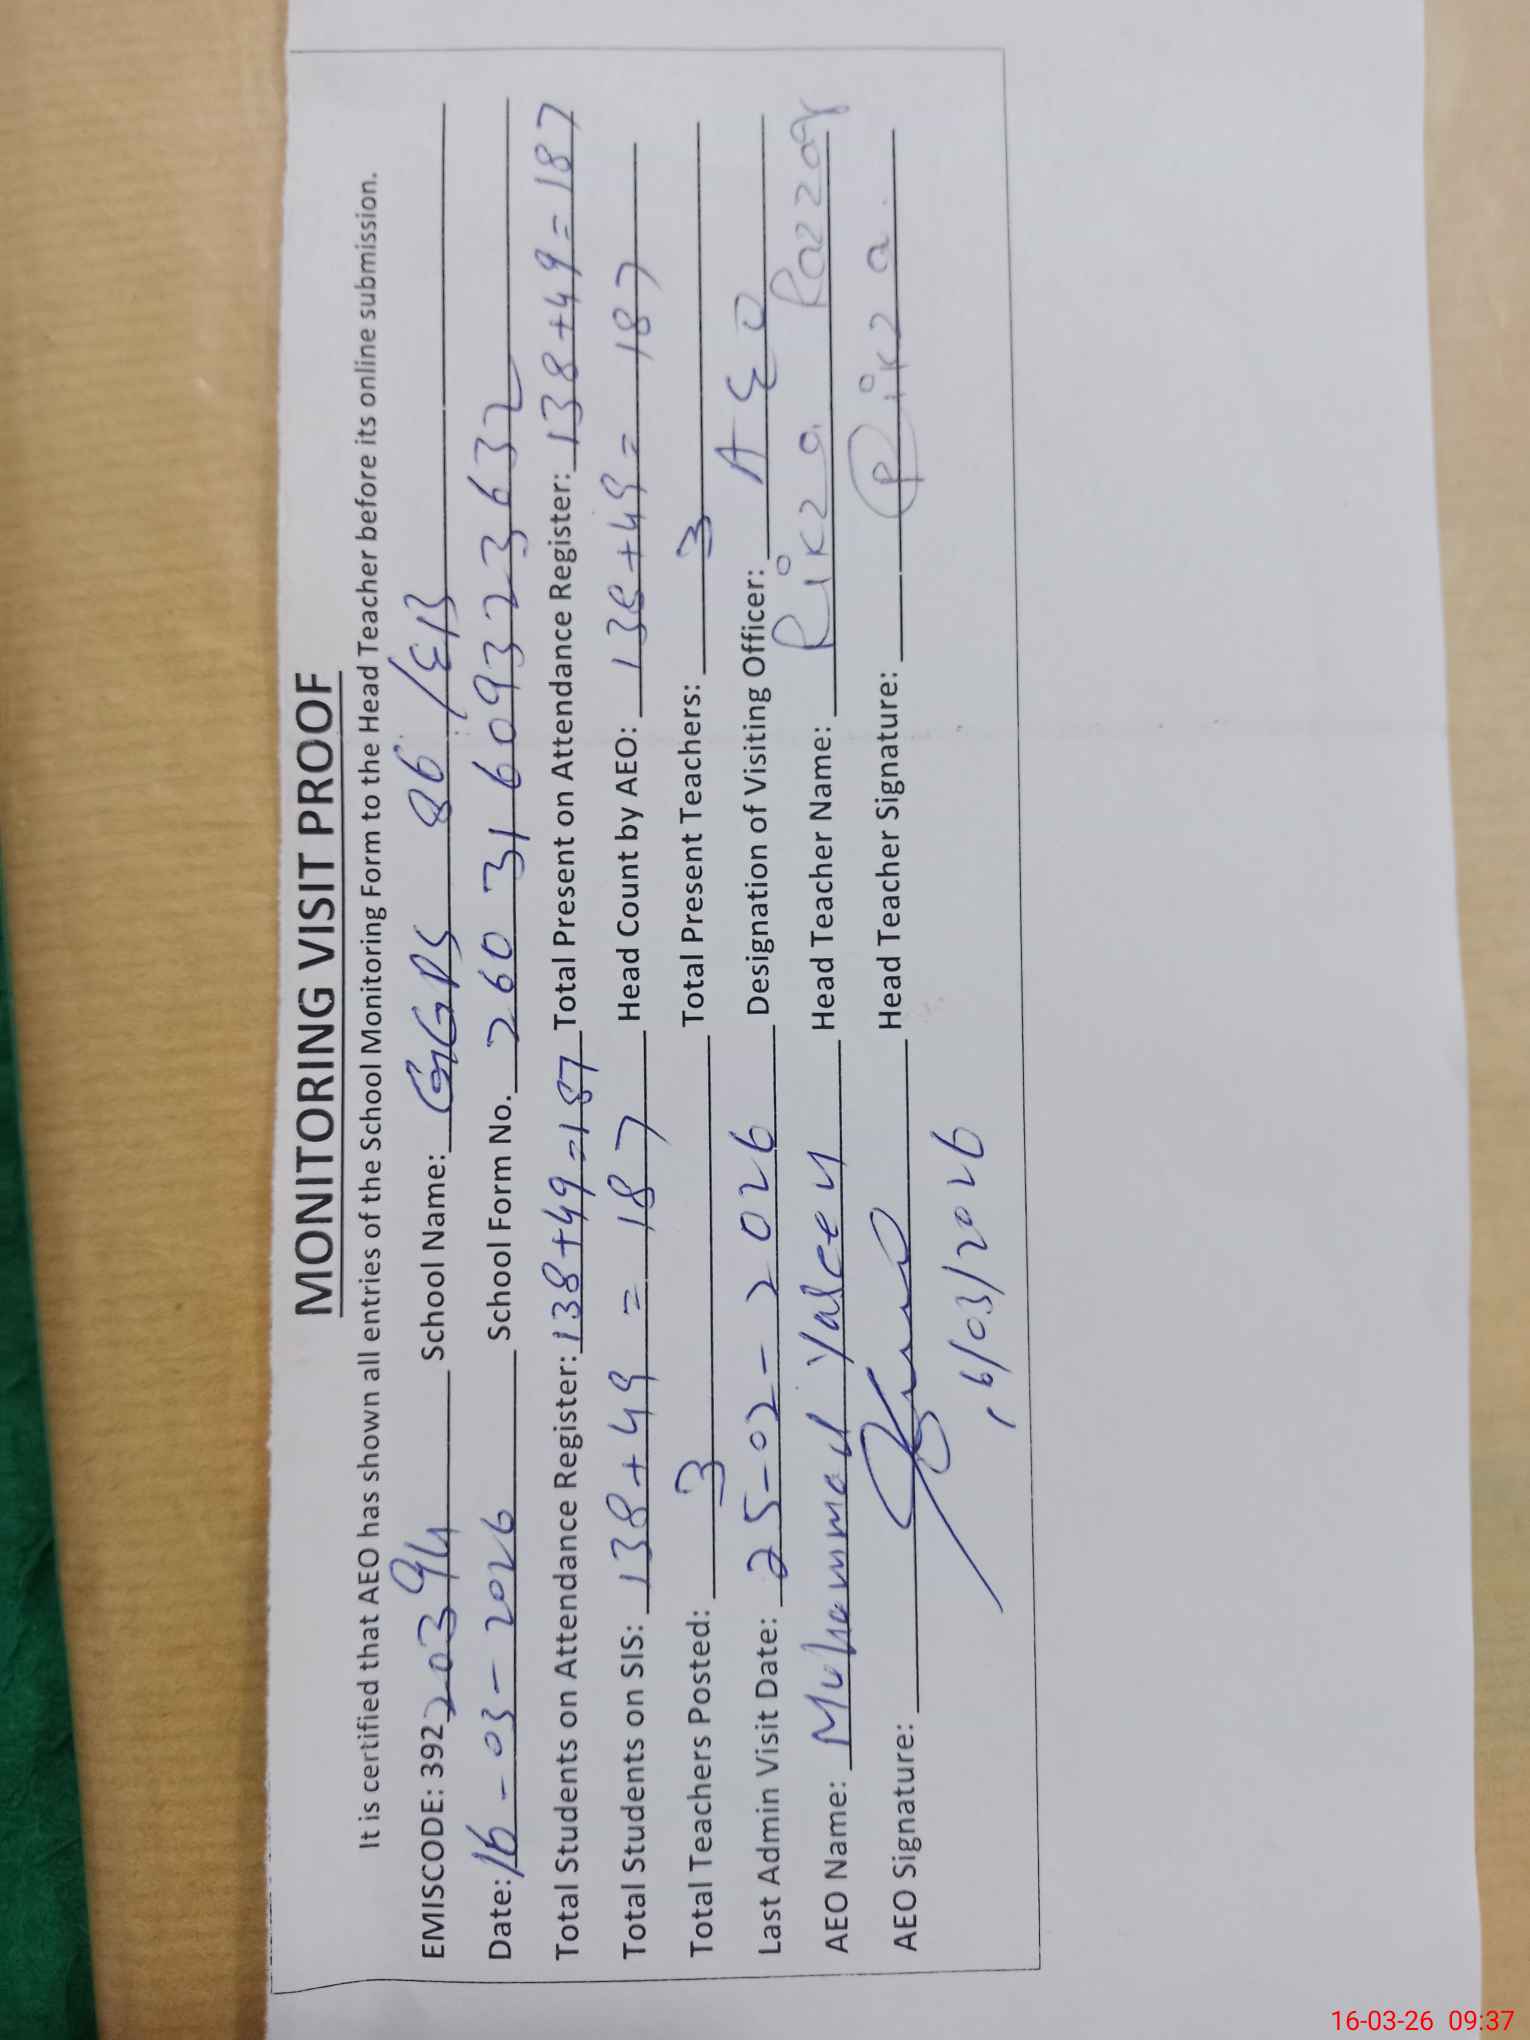 MONITORING VISIT PROOF
It is certified that AEO has shown all entries of the School Monitoring Form to the Head Teacher before its online submission.
EMISCODE: 39220394 School Name: GGPS 86/EB
Date: 16-03-2026 School Form No. 26031609323632
Total Students on Attendance Register: 138+49=187 Total Present on Attendance Register: 138+49=187
Total Students on SIS: 138+49 = 187 Head Count by AEO: 138+49= 187
Total Teachers Posted: 3 Total Present Teachers: 3
Last Admin Visit Date: 25-02-2026 Designation of Visiting Officer: AEO
AEO Name: Muhammad Yaseen Head Teacher Name: Rikza Razzaq
AEO Signature: Head Teacher Signature: Rikza
16/03/2026
16-03-26 09:37